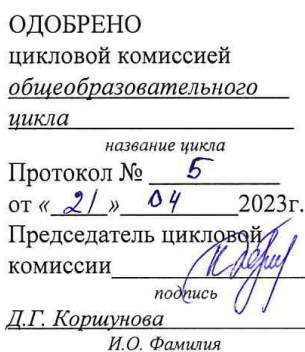 ОДОБРЕНО
цикловой комиссией
общеобразовательного
цикла
название цикла
Протокол № 5
от « 21 » 04 2023г.
Председатель цикловой
комиссии
подпись
Д.Г. Коршунова
И.О. Фамилия